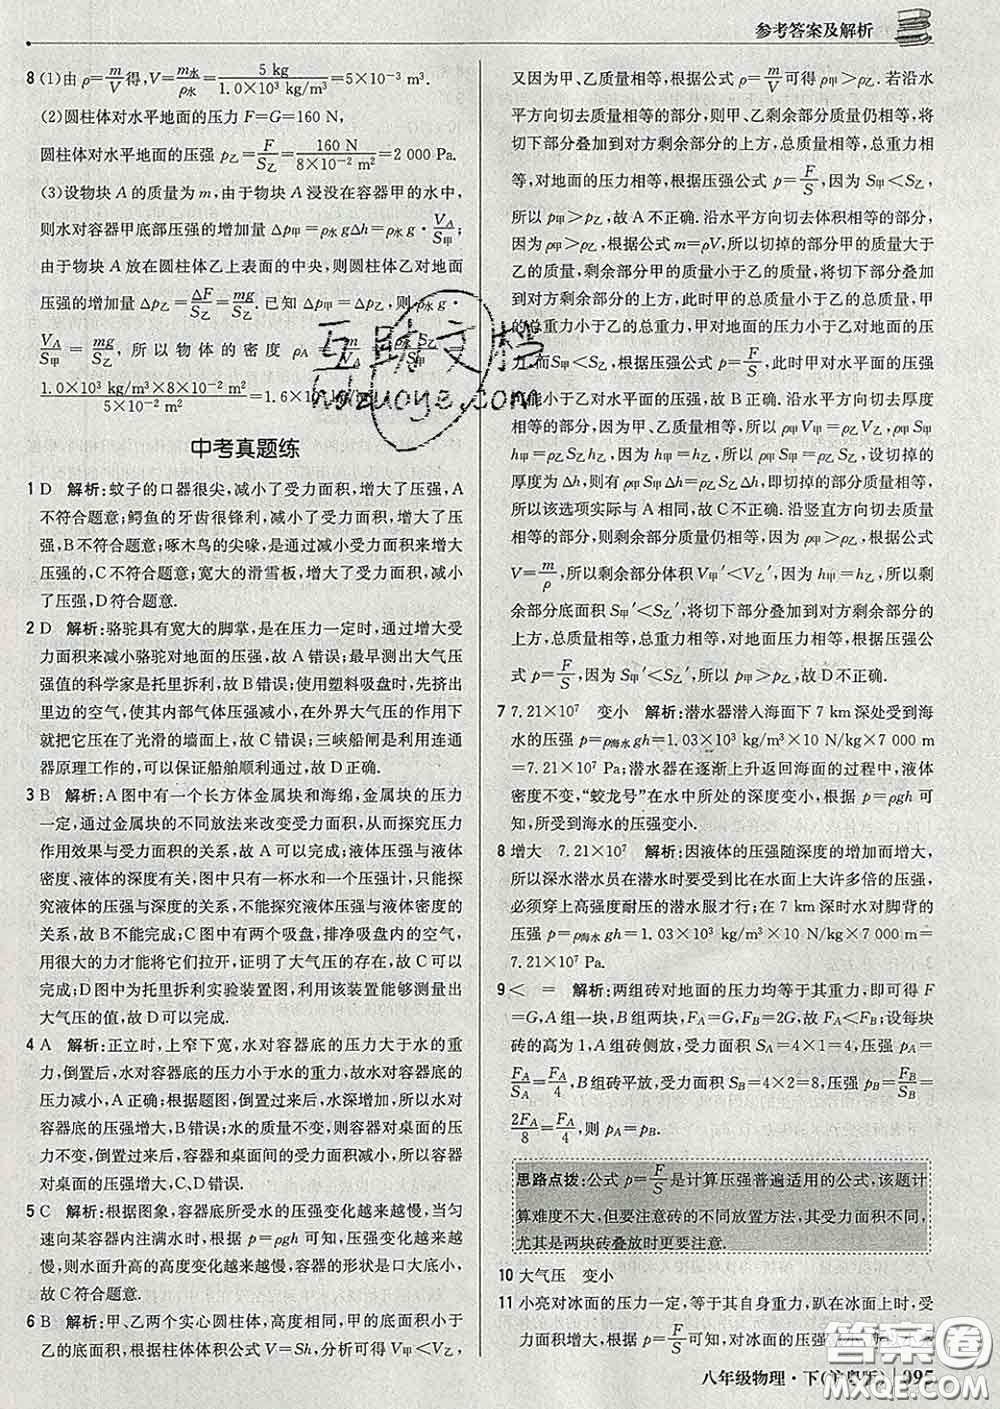 参考答案及解析
8 (1)由 ρ=m/V 得,V=m水/ρ水=5 kg/1.0×10³ kg/m³=5×10⁻³ m³.
(2)圆柱体对水平地面的压力 F=G=160 N,
圆柱体对水平地面的压强 p乙=F/S乙=160 N/8×10⁻² m²=2 000 Pa.
(3)设物块 A 的质量为 m,由于物块 A 浸没在容器甲的水中,
则水对容器甲底部压强的增加量 Δp甲=ρ水gΔh=ρ水g·VA/S甲;
由于物块 A 放在圆柱体乙上表面的中央,则圆柱体乙对地面
压强的增加量 Δp乙=ΔF/S乙=mg/S乙.已知 Δp甲=Δp乙,则 ρ水g·
VA/S甲=mg/S乙,所以物体的密度 ρA=m/VA=
1.0×10³ kg/m³×8×10⁻² m²/5×10⁻² m²=1.6×10
中考真题练
1 D 解析:蚊子的口器很尖,减小了受力面积,增大了压强,A
不符合题意;鳄鱼的牙齿很锋利,减小了受力面积,增大了压
强,B不符合题意;啄木鸟的尖喙,是通过减小受力面积来增大
压强的,C不符合题意;宽大的滑雪板,增大了受力面积,减小
了压强,D符合题意.
2 D 解析:骆驼具有宽大的脚掌,是在压力一定时,通过增大受
力面积来减小骆驼对地面的压强,故A错误;最早测出大气压
强值的科学家是托里拆利,故B错误;使用塑料吸盘时,先挤出
里边的空气,使其内部气体压强减小,在外界大气压的作用下
就把它压在了光滑的墙面上,故C错误;三峡船闸是利用连通
器原理工作的,可以保证船舶顺利通过,故D正确.
3 B 解析:A图中有一个长方体金属块和海绵,金属块的压力
一定,通过金属块的不同放法来改变受力面积,从而探究压力
作用效果与受力面积的关系,故A可以完成;液体压强与液体
密度、液体的深度有关,B图中只有一杯水和一个压强计,只能
探究液体的压强与深度的关系,不能探究液体压强与液体密度
的关系,故B不能完成;C图中有两个吸盘,排净吸盘内的空气,
用很大的力才能将它们拉开,证明了大气压的存在,故C可以
完成;D图中为托里拆利实验装置图,利用该装置能够测量出
大气压的值,故D可以完成.
4 A 解析:正立时,上窄下宽,水对容器底的压力大于水的重
力,倒立时,水对容器底的压力小于水的重力,故水对容器底的
压力减小,A正确;根据题图,倒置过来后,水深增加,所以水对
容器底的压强增大,B错误;水的质量不变,则容器对桌面的压
力不变,倒置过来后,容器和桌面间的受力面积减小,所以容器
对桌面的压强增大,C、D错误.
5 C 解析:根据图象,容器底所受水的压强变化越来越慢,当匀
速向某容器内注满水时,根据 p=ρgh 可知,压强变化越来越
慢,则水面升高的高度变化越来越慢,容器的形状是口大底小,
故C符合题意.
6 B 解析:甲、乙两个实心圆柱体,高度相同,甲的底面积小于
乙的底面积,根据柱体体积公式 V=Sh,分析可得 V甲<V乙,
又因为甲、乙质量相等,根据公式 ρ=m/V可得 ρ甲>ρ乙.若沿水
平方向切去质量相等的部分,则甲、乙剩余部分质量仍相等,将
切下部分叠加到对方剩余部分的上方,总质量相等,总重力相
等,对地面的压力相等,根据压强公式 p=F/S,因为 S甲<S乙,
所以 p甲>p乙,故A不正确.沿水平方向切去体积相等的部分,
因为 ρ甲>ρ乙,根据公式 m=ρV,所以切掉的部分甲的质量大于
乙的质量,剩余部分甲的质量小于乙的质量,将切下部分叠加
到对方剩余部分的上方,此时甲的总质量小于乙的总质量,甲
的总重力小于乙的总重力,甲对地面的压力小于乙对地面的压
力,而S甲<S乙,根据压强公式 p=F/S,此时甲对水平面的压强
可能小于乙对水平面的压强,故B正确.沿水平方向切去厚度
相等的部分,因为质量相等,所以 ρ甲V甲=ρ乙V乙,ρ甲S甲
h甲=ρ乙S乙h乙,因为 h甲=h乙,所以 ρ甲S甲=ρ乙S乙,设切掉的
厚度为 Δh,则有 ρ甲S甲Δh=ρ乙S乙Δh,所以切掉的质量相等,
所以该选项实际与A相同,故C不正确.沿竖直方向切去质量
相等的部分,则剩余部分质量仍相等,因为 ρ甲>ρ乙,根据公式
V=m/ρ,所以剩余部分体积 V甲′<V乙′,因为 h甲=h乙,所以剩
余部分底面积 S甲′<S乙′,将切下部分叠加到对方剩余部分的
上方,总质量相等,总重力相等,对地面压力相等,根据压强公
式 p=F/S,因为 S甲′<S乙′,所以 p甲>p乙,故D不正确.
7 7.21×10⁷ 变小 解析:潜水器潜入海面下 7 km 深处受到海
水的压强 p=ρ海水gh=1.03×10³ kg/m³×10 N/kg×7 000 m
=7.21×10⁷ Pa;潜水器在逐渐上升返回海面的过程中,液体
密度不变,“蛟龙号”在水中所处的深度变小,根据 p=ρgh 可
知,所受到海水的压强变小.
8 增大 7.21×10⁷ 解析:因液体的压强随深度的增加而增大,
所以深水潜水员在潜水时要受到比在水面上大许多倍的压强,
必须穿上高强度耐压的潜水服才行;在 7 km 深时水对脚背的
压强 p=ρ海水gh=1.03×10³ kg/m³×10 N/kg×7 000 m=
7.21×10⁷ Pa.
9 < = 解析:两组砖对地面的压力均等于其重力,即可得 F
=G,A组一块,B组两块,FA=G,FB=2G,故 FA<FB;设每块
砖的高为1,A组砖侧放,受力面积 SA=4×1=4,压强 pA=
FA/SA=FA/4,B组砖平放,受力面积 SB=4×2=8,压强 pB=FB/SB=
2FA/8=FA/4,则 pA=pB.
思路点拨:公式 p=F/S是计算压强普遍适用的公式,该题计
算难度不大,但要注意砖的不同放置方法,其受力面积不同,
尤其是两块砖叠放时更要注意.
10 大气压 变小
11 小亮对冰面的压力一定,等于其自身重力,趴在冰面上时,受
力面积增大,根据 p=F/S可知,对冰面的压强
八年级物理·下 095
互助文档
hdzuoye.com
答案圈
MXQE.COM